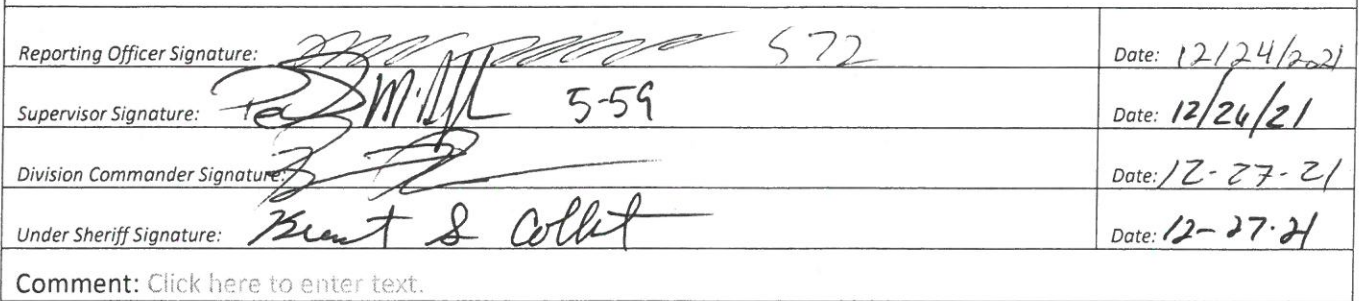 Reporting Officer Signature: 572 Date: 12/24/2021
Supervisor Signature: 5-59 Date: 12/24/21
Division Commander Signature: Date: 12-27-21
Under Sheriff Signature: Date: 12-27-21
Comment: Click here to enter text.